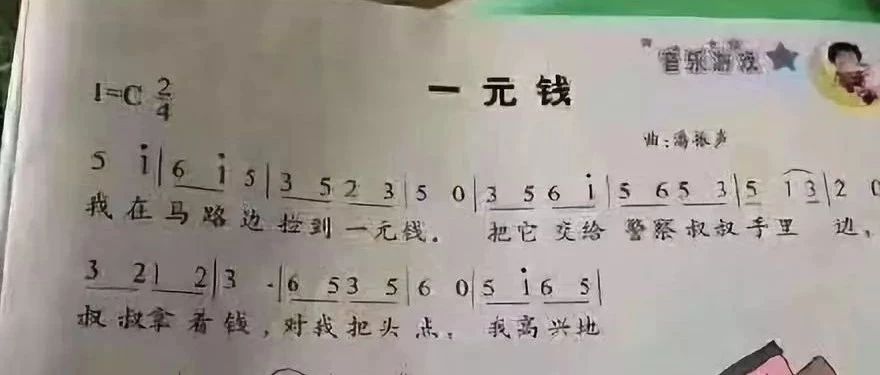 音乐游戏
1=C 2/4
一元钱
曲:潘振声
5 i | 6 i 5 | 3 5 2 3 | 5 0 | 3 5 6 i | 5 6 5 3 | 5 1 3 | 2 0
我在马路边捡到一元钱。 把它交给警察叔叔手里边,
3 2 1 2 | 3 - | 6 5 3 5 | 6 0 | 5 i 6 5 |
叔叔拿着钱,对我把头点。 我高兴地